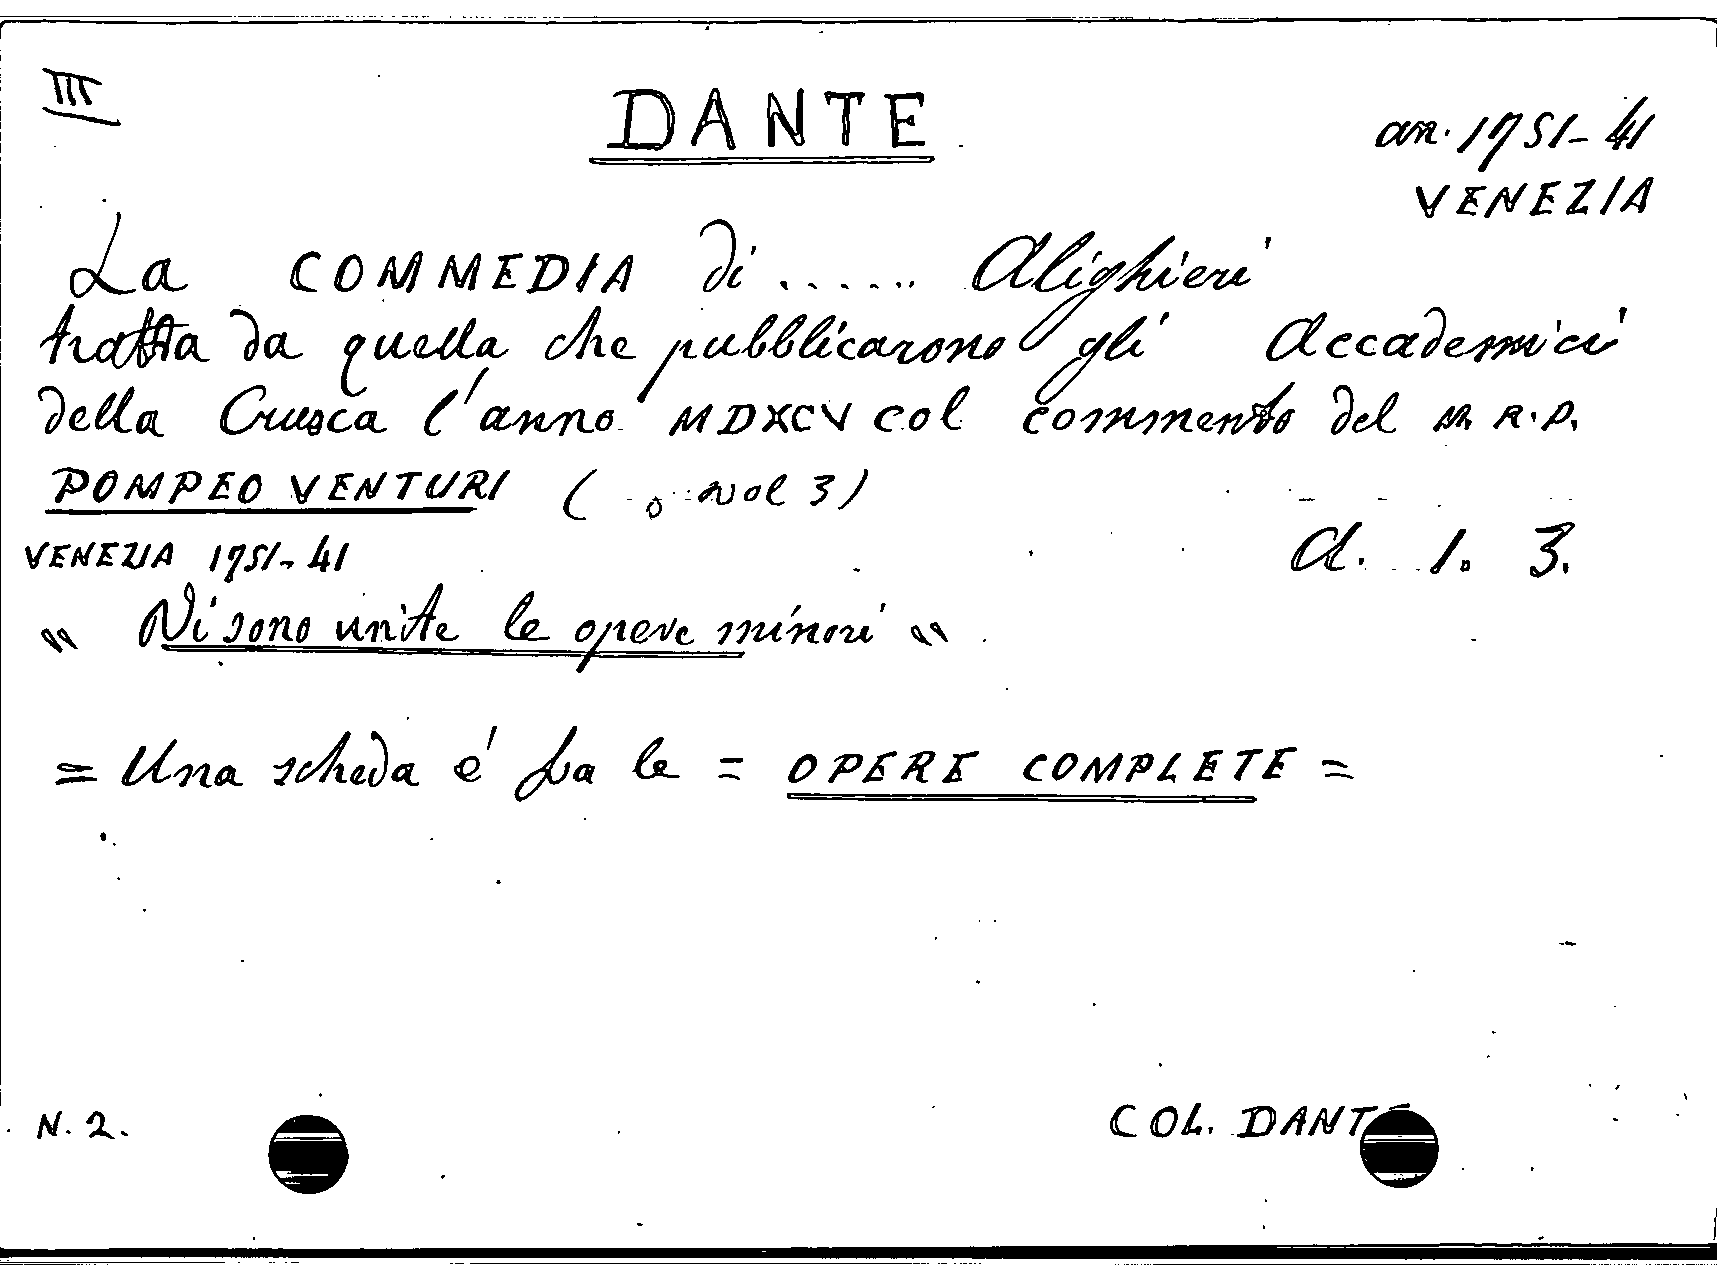 III
DANTE
an. 1751-41
VENEZIA
La COMMEDIA di ...... Alighieri
tratta da quella che pubblicarono gli Accademici
della Crusca l'anno MDXCV col commento del M. R. P.
POMPEO VENTURI ( vol 3)
VENEZIA 1751-41
A. 1. 3.
" Vi sono unite le opere minori "
= Una scheda é fra le = OPERE COMPLETE =
N. 2.
COL. DANTE